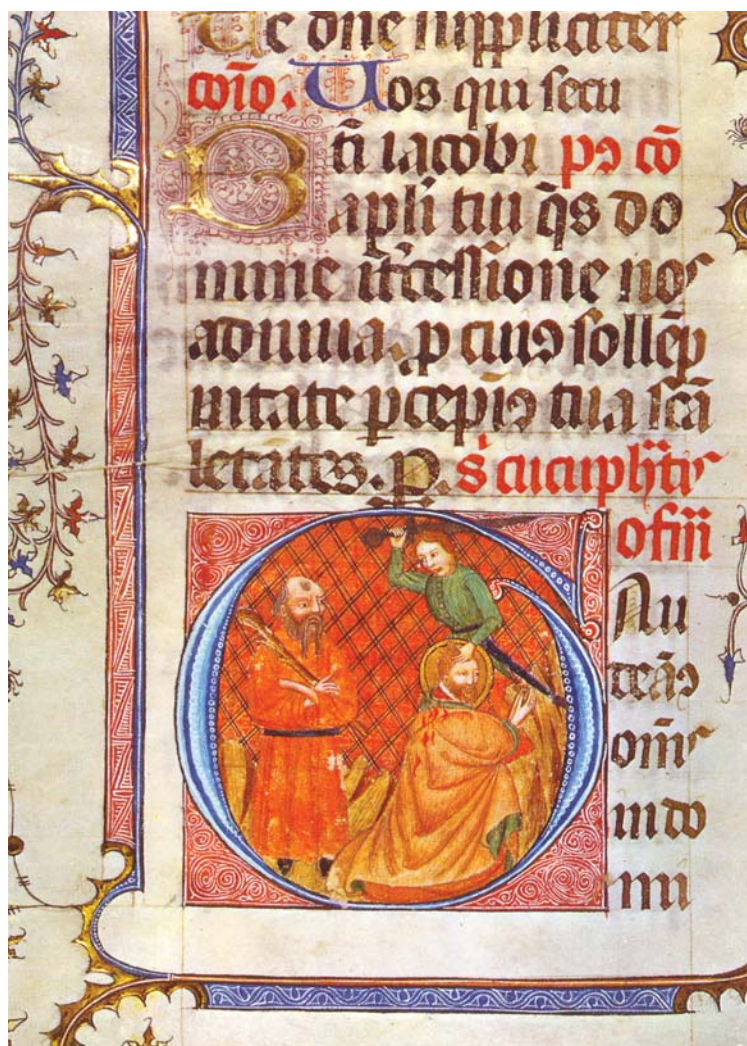 Te dn̄e suppliciter
cōio. Uos qui secu
B ti iacobi pꝰ cō
apl̄i tui q̄s do
mine it̄cessione nos
adiuua. ꝑ cuiꝰ sollēp
nitate ꝑcepiꝰ tua scā
letates. P. S cucuphatis
ofm̄
GAu
deāꝰ
om̄s
in do
mi